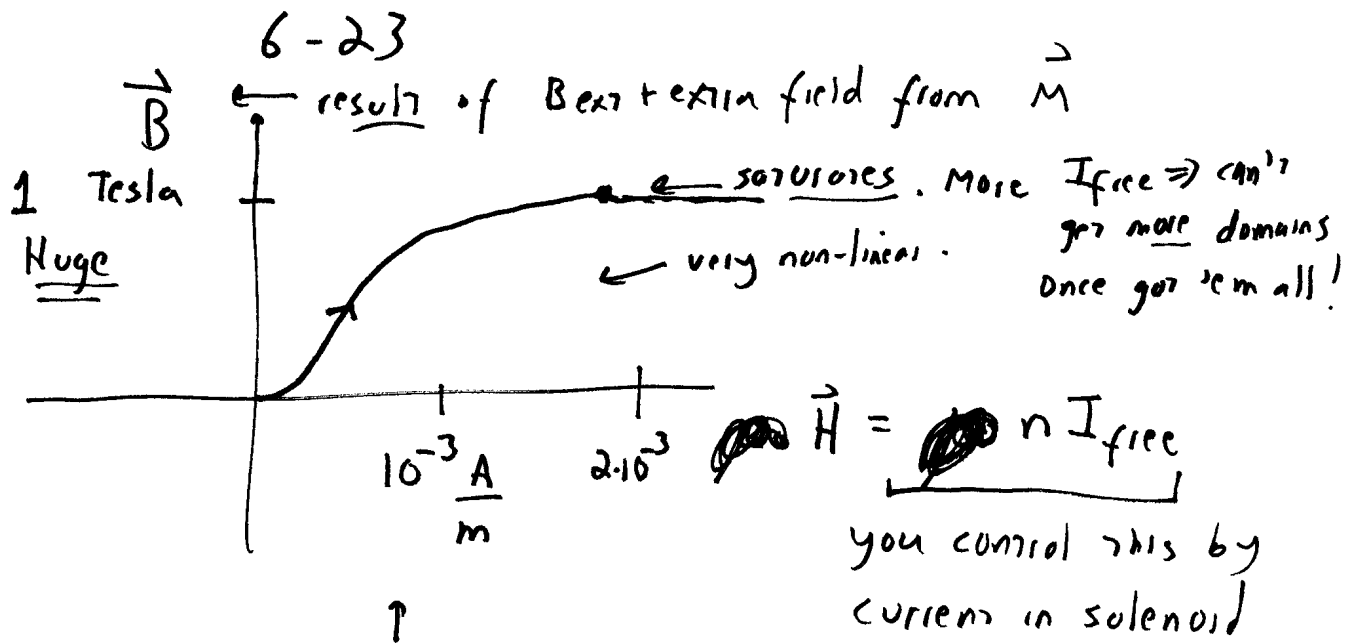 6-23
B⃗ ← result of Bext + extra field from M⃗
1 Tesla
Huge
← saturates. More Ifree ⇒ can't
get more domains
once got 'em all!
← very non-linear.
10⁻³ A/m
2·10⁻³
H⃗ = n Ifree
you control this by
current in solenoid
↑